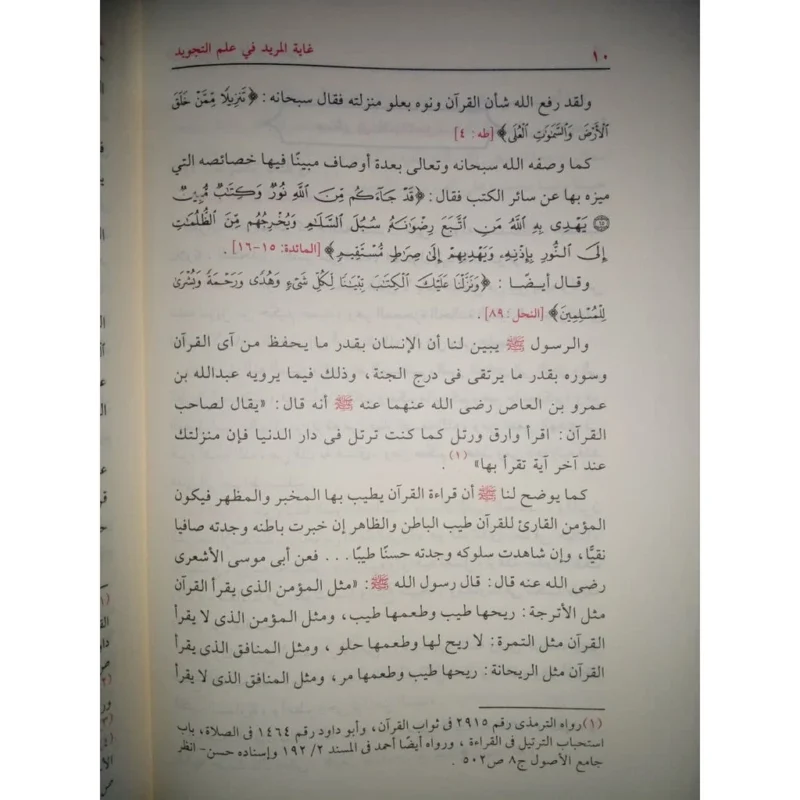 ١٠
غاية المريد في علم التجويد
ولقد رفع الله شأن القرآن ونوه بعلو منزلته فقال سبحانه: ﴿تَنزِيلًا مِّمَّنْ خَلَقَ
ٱلْأَرْضَ وَٱلسَّمَٰوَٰتِ ٱلْعُلَى﴾ [طه: ٤]
كما وصفه الله سبحانه وتعالى بعدة أوصاف مبينًا فيها خصائصه التي
ميزه بها عن سائر الكتب فقال: ﴿قَدْ جَآءَكُم مِّنَ ٱللَّهِ نُورٌ وَكِتَٰبٌ مُّبِينٌ
۝١٥ يَهْدِى بِهِ ٱللَّهُ مَنِ ٱتَّبَعَ رِضْوَٰنَهُۥ سُبُلَ ٱلسَّلَٰمِ وَيُخْرِجُهُم مِّنَ ٱلظُّلُمَٰتِ
إِلَى ٱلنُّورِ بِإِذْنِهِۦ وَيَهْدِيهِمْ إِلَىٰ صِرَٰطٍ مُّسْتَقِيمٍ﴾ [المائدة: ١٥-١٦] .
وقال أيضًا : ﴿وَنَزَّلْنَا عَلَيْكَ ٱلْكِتَٰبَ تِبْيَٰنًا لِّكُلِّ شَىْءٍ وَهُدًى وَرَحْمَةً وَبُشْرَىٰ
لِلْمُسْلِمِينَ﴾ [النحل: ٨٩] .
والرسول ﷺ يبين لنا أن الإنسان بقدر ما يحفظ من آى القرآن
وسوره بقدر ما يرتقى فى درج الجنة، وذلك فيما يرويه عبدالله بن
عمرو بن العاص رضى الله عنهما عنه ﷺ أنه قال: «يقال لصاحب
القرآن: اقرأ وارق ورتل كما كنت ترتل فى دار الدنيا فإن منزلتك
عند آخر آية تقرأ بها» (١) .
كما يوضح لنا ﷺ أن قراءة القرآن يطيب بها المخبر والمظهر فيكون
المؤمن القارئ للقرآن طيب الباطن والظاهر إن خبرت باطنه وجدته صافيا
نقيًّا، وإن شاهدت سلوكه وجدته حسنًا طيبًا... فعن أبى موسى الأشعرى
رضى الله عنه قال: قال رسول الله ﷺ: «مثل المؤمن الذى يقرأ القرآن
مثل الأترجة: ريحها طيب وطعمها طيب، ومثل المؤمن الذى لا يقرأ
القرآن مثل التمرة: لا ريح لها وطعمها حلو ، ومثل المنافق الذى يقرأ
القرآن مثل الريحانة: ريحها طيب وطعمها مر، ومثل المنافق الذى لا يقرأ
(١) رواه الترمذى رقم ٢٩١٥ فى ثواب القرآن، وأبو داود رقم ١٤٦٤ فى الصلاة، باب
استحباب الترتيل فى القراءة ، ورواه أيضًا أحمد فى المسند ٢/ ١٩٢ وإسناده حسن- انظر
جامع الأصول ج٨ ص٥٠٢ .